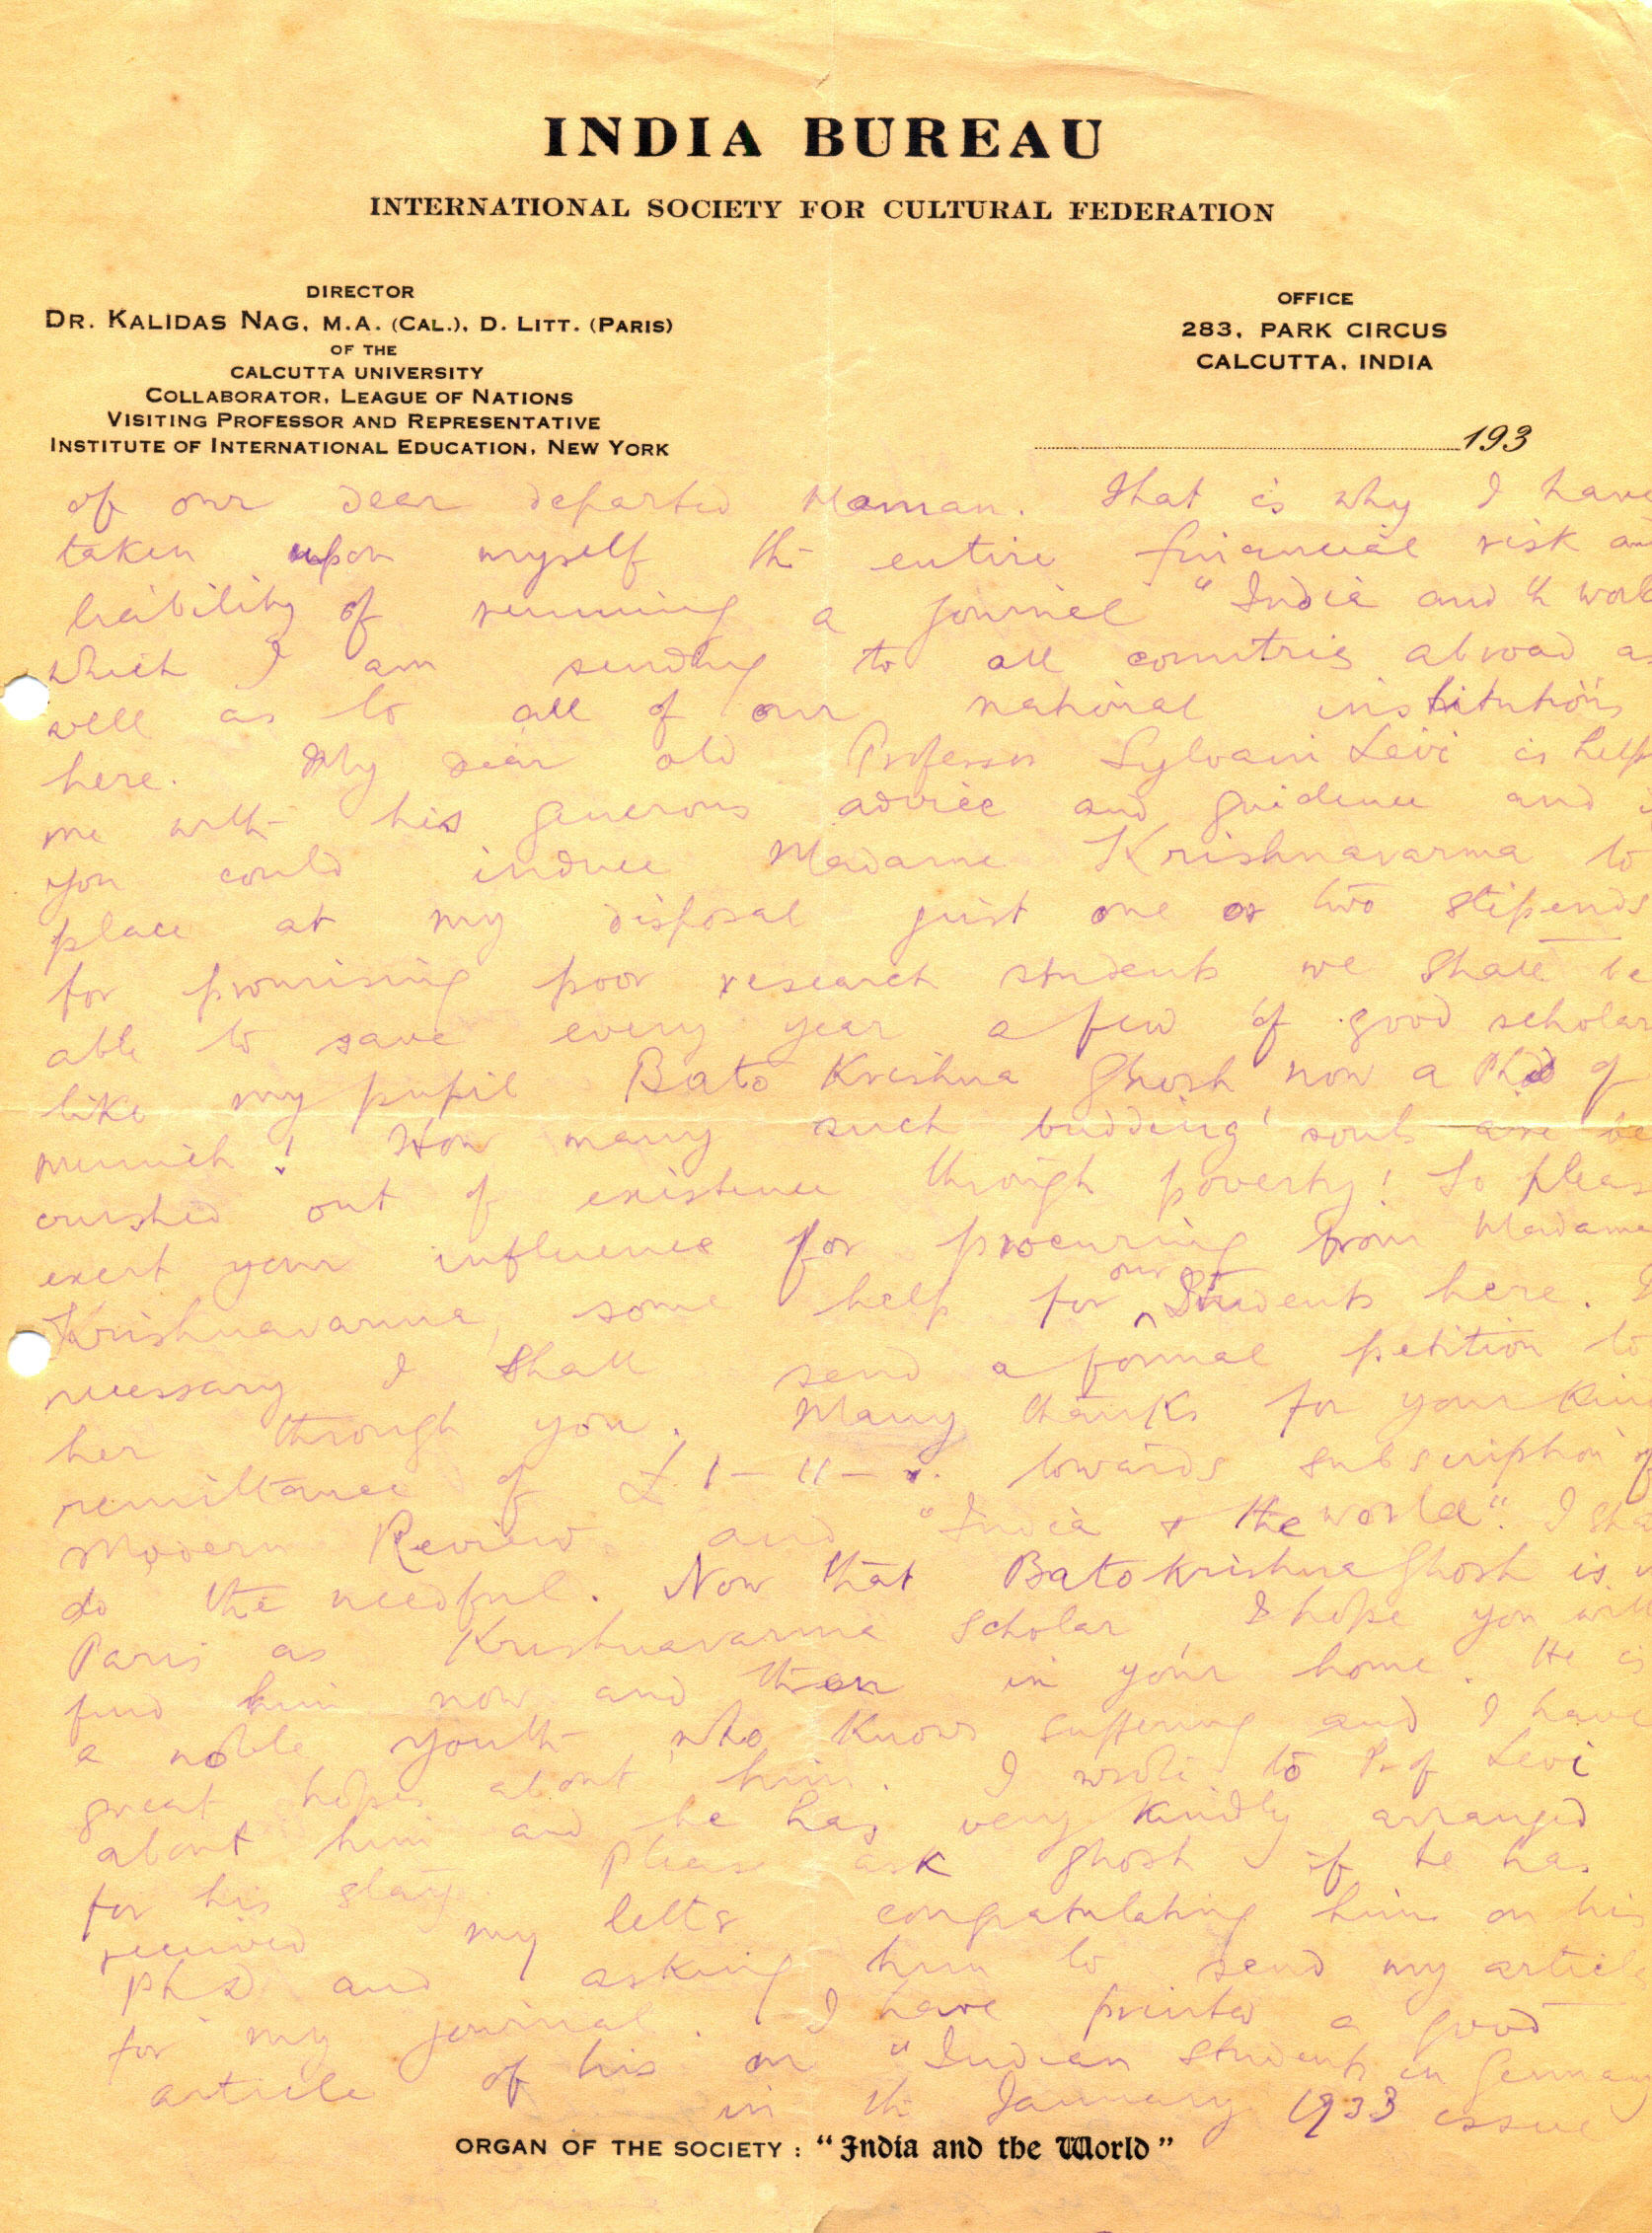 INDIA BUREAU
INTERNATIONAL SOCIETY FOR CULTURAL FEDERATION
DIRECTOR
DR. KALIDAS NAG, M.A. (CAL.), D. LITT. (PARIS)
OF THE
CALCUTTA UNIVERSITY
COLLABORATOR, LEAGUE OF NATIONS
VISITING PROFESSOR AND REPRESENTATIVE
INSTITUTE OF INTERNATIONAL EDUCATION, NEW YORK
OFFICE
283, PARK CIRCUS
CALCUTTA, INDIA
193
of our dear departed Maman. That is why I have
taken upon myself th entire financial risk an
liability of running a journal "India and th worl
which I am sending to all countries abroad as
well as to all of our national institutions
here. My dear old Professor Sylvain Levi is help
me with his generous advice and guidence and i
you could induce Madame Krishnavarma to
place at my disposal just one or two stipends
for promising poor research students we shall be
able to save every year a few of good scholar
like my pupil Bato Krishna Ghosh now a PhD of
Munich! How many such budding souls are be
crushed out of existence through poverty! So pleas
exert your influence for procuring from Madame
Krishnavarma, some help for our Students here. I
necessary I shall send a formal petition to
her through you. Many thanks for your kin
remittance of £ 1-11- towards subscription of
Modern Review and "India & the world". I sha
do the needful. Now that Batokrishna Ghosh is i
Paris as Krishnavarma Scholar I hope you will
find him now and then in your home. He is
a noble youth who knows suffering and I have
great hopes about him. I wrote to Prof Levi
about him and he has very kindly arranged
for his stay. Please ask Ghosh if he has
received my letter congratulating him on his
PhD and asking him to send my article
for my journal. I have printed a good
article of his on "Indian Students in Germany
in th January 1933 issue
ORGAN OF THE SOCIETY : "India and the World"